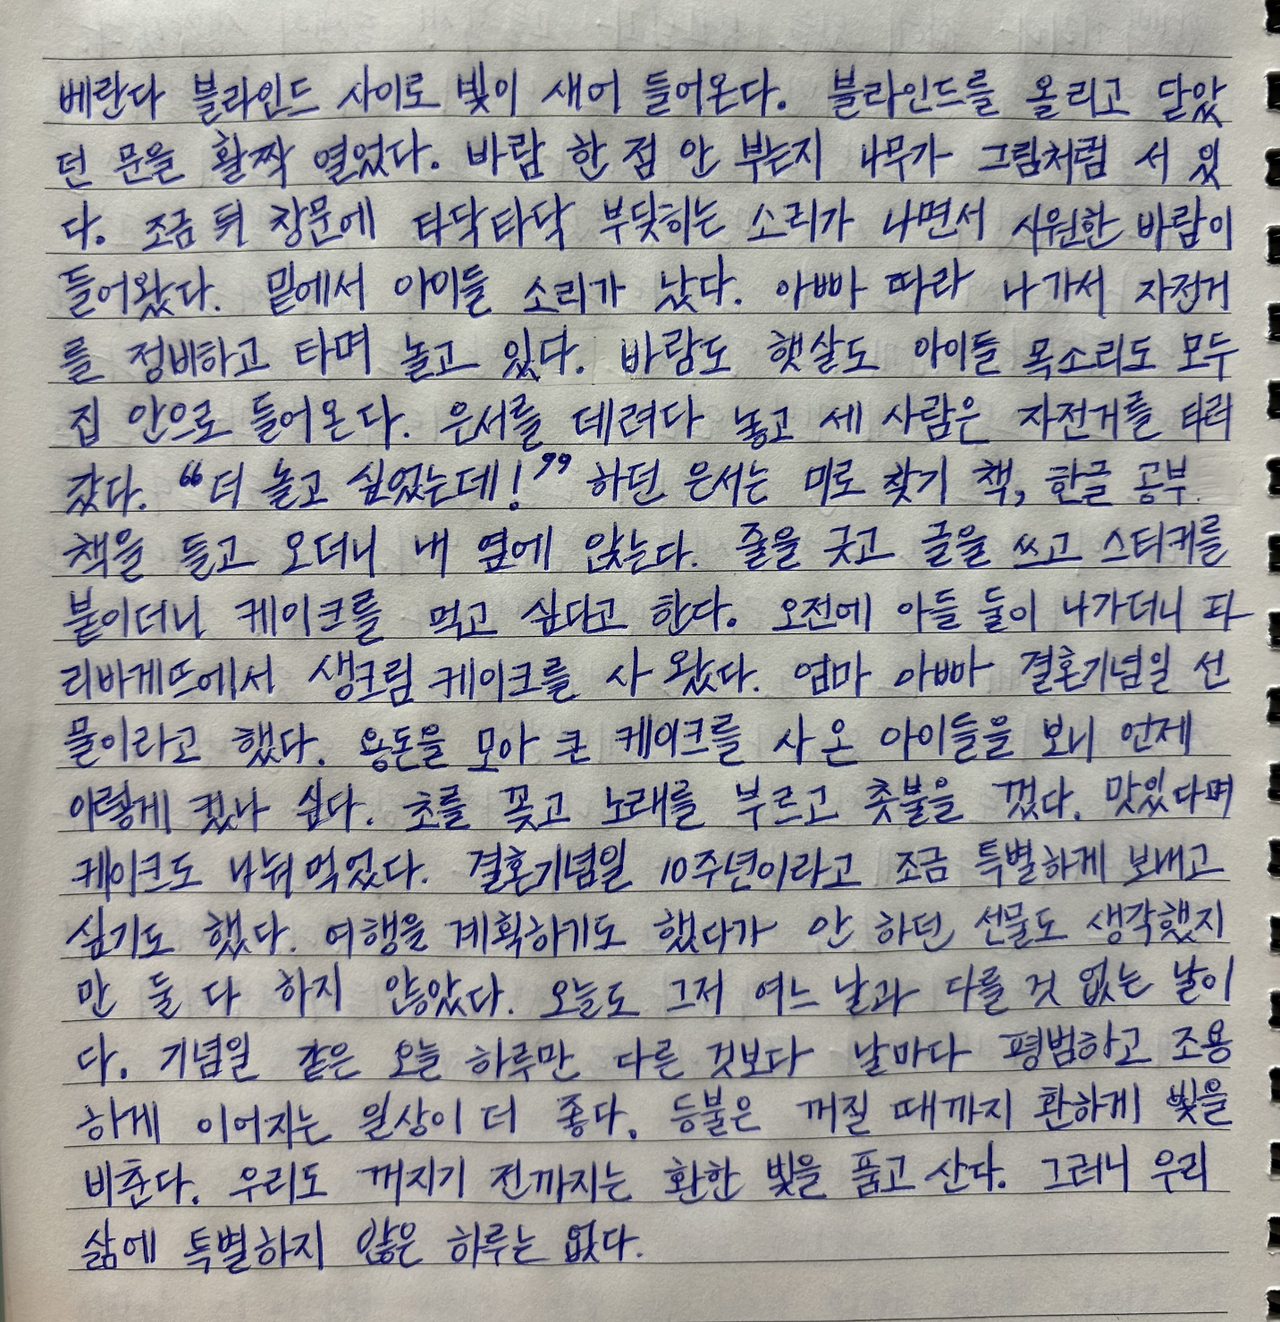 베란다 블라인드 사이로 빛이 새어 들어온다. 블라인드를 올리고 닫았
던 문을 활짝 열었다. 바람 한 점 안 부는지 나무가 그림처럼 서 있
다. 조금 뒤 창문에 타닥타닥 부딪히는 소리가 나면서 시원한 바람이
들어왔다. 밑에서 아이들 소리가 났다. 아빠 따라 나가서 자전거
를 정비하고 타며 놀고 있다. 바람도 햇살도 아이들 목소리도 모두
집 안으로 들어온다. 은서를 데려다 놓고 세 사람은 자전거를 타러
갔다. “더 놀고 싶었는데!” 하던 은서는 미로 찾기 책, 한글 공부
책을 들고 오더니 내 옆에 앉는다. 줄을 긋고 글을 쓰고 스티커를
붙이더니 케이크를 먹고 싶다고 한다. 오전에 아들 둘이 나가더니 파
리바게뜨에서 생크림 케이크를 사 왔다. 엄마 아빠 결혼기념일 선
물이라고 했다. 용돈을 모아 큰 케이크를 사 온 아이들을 보니 언제
이렇게 컸나 싶다. 초를 꽂고 노래를 부르고 촛불을 껐다. 맛있다며
케이크도 나눠 먹었다. 결혼기념일 10주년이라고 조금 특별하게 보내고
싶기도 했다. 여행을 계획하기도 했다가 안 하던 선물도 생각했지
만 둘 다 하지 않았다. 오늘도 그저 여느 날과 다를 것 없는 날이
다. 기념일 같은 오늘 하루만 다른 것보다 날마다 평범하고 조용
하게 이어지는 일상이 더 좋다. 등불은 꺼질 때까지 환하게 빛을
비춘다. 우리도 꺼지기 전까지는 환한 빛을 품고 산다. 그러니 우리
삶에 특별하지 않은 하루는 없다.